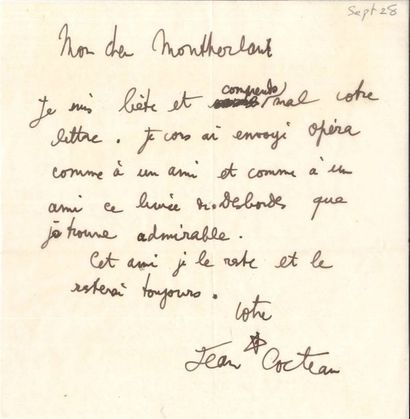 Sept 28
Mon cher Montherlant
Je suis bête et comprends mal votre
lettre. Je vous ai envoyé opéra
comme à un ami et comme à un
ami ce livre de Desbordes que
je trouve admirable.
Cet ami je le reste et le
resterai toujours.
votre
Jean Cocteau